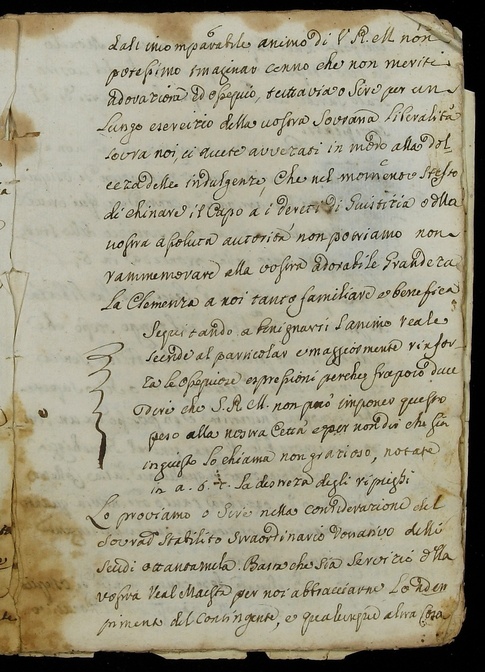 dall incomparabile animo di V. R. M. non
potessimo imaginar cenno che non meriti
adorazione ed ossequio, tuttavia o Sire per un
Lungo esercizio della vostra Sovrana Liberalità
sovra noi, ci avete avvezati in modo alla dol
ceza delle indulgenze Che nel momento Stesso
di chinare il Capo a i decreti di Giustitia e dlla
vostra assoluta autorità non potriamo non
rammemorare alla vostra adorabile Grandeza
La Clemenza a noi tanto familiare e benefica
Seguitando a benignarsi l'animo reale
scende al particolar e maggiormente rinfor
za le ossequiose espressioni perche frapoco
dire che S. R. M. non può imponer questo
peso alla nostra Città e per non dir che sia
ingiusto lo chiama non grazioso, notate
in a. 6. c. la destreza degli ripieghi
Lo proviamo o Sire nella considerazione del
Stabilito straordinario Donativo delli
Scudi ottantamila. Basta che sia servizio dlla
vostra Real Maestà per noi abbracciarne L'adem
pimento del Contingente, e qualunque altra Cosa